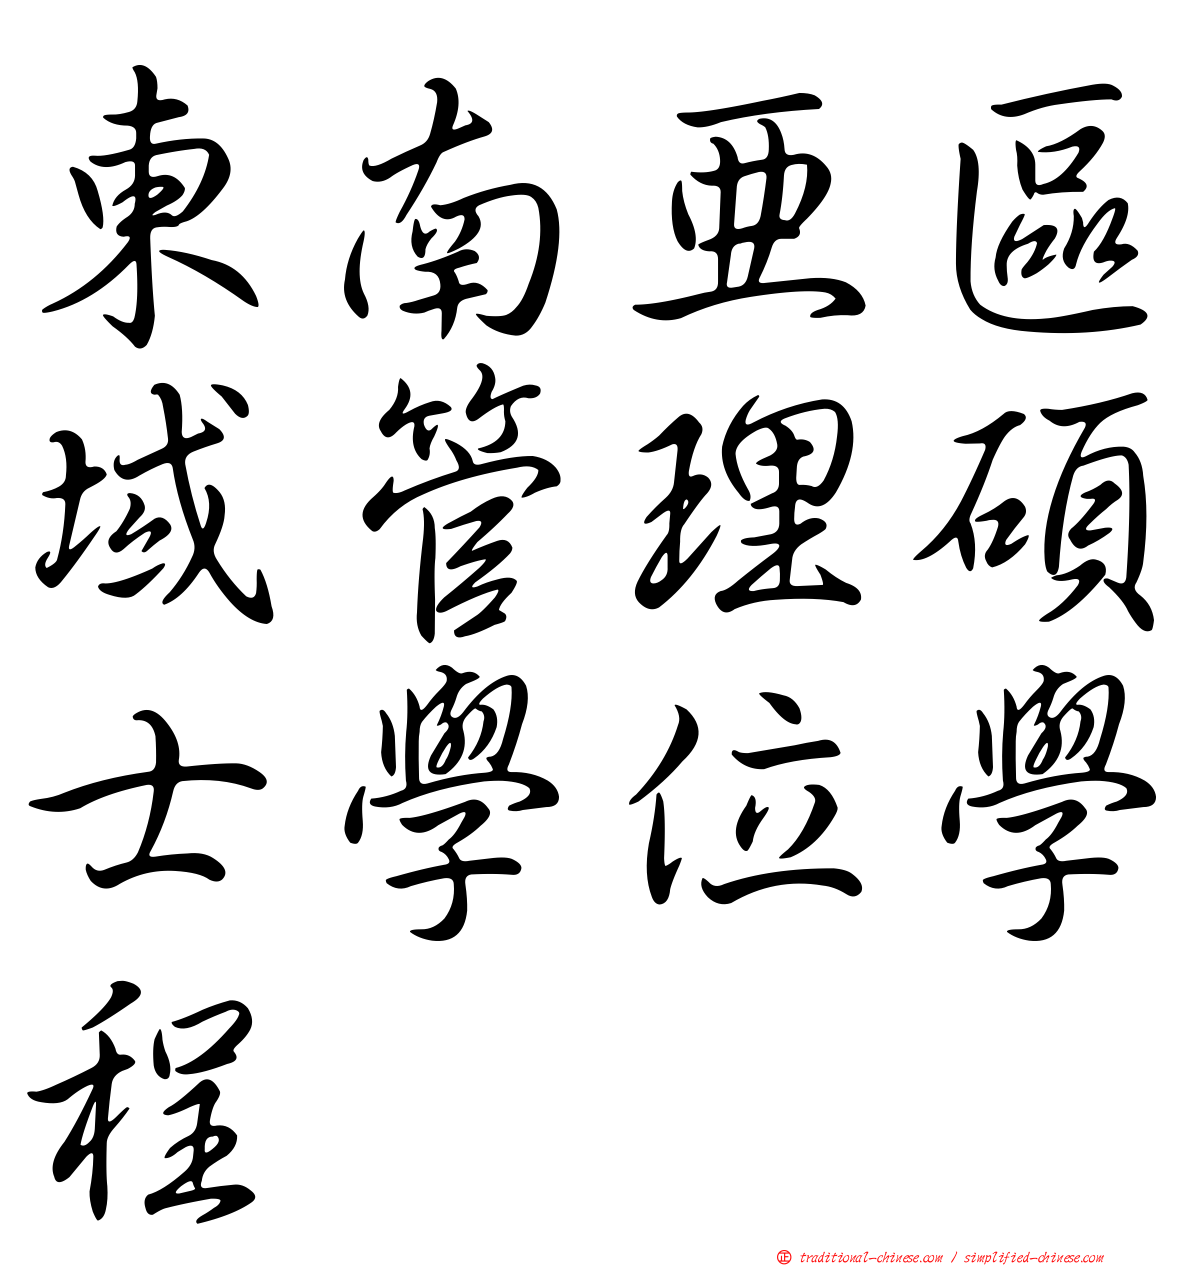 東南亞區
域管理碩
士學位學
程
正 traditional-chinese.com / simplified-chinese.com